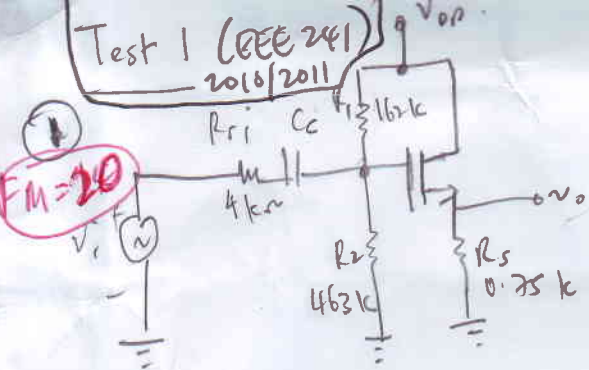 Test 1 (EEE 241)
2010/2011
VDD.
1
FM=20
Rsi
Cc
R1
162k
4kΩ
Vi
+
~
-
R2
463k
vo
Rs
0.75 k